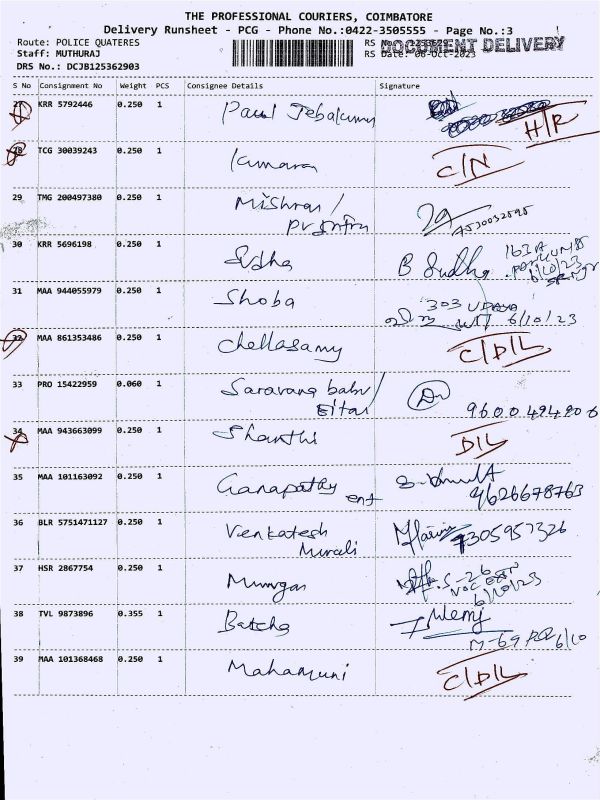 THE PROFESSIONAL COURIERS, COIMBATORE
Delivery Runsheet - PCG - Phone No.:0422-3505555 - Page No.:3
Route: POLICE QUATERES RS No.:
DOCUMENT DELIVERY
Staff: MUTHURAJ RS Date: 06-Oct-2023
DRS No.: DCJB125362903
S No Consignment No Weight PCS Consignee Details Signature
27 KRR 5792446 0.250 1 Paul Jebakumar H/R
28 TCG 30039243 0.250 1 Kumaran C/N
29 TMG 200497380 0.250 1 Mishran /
30 KRR 5696198 0.250 1 Sudha B Sudha 163A
6/10/23
31 MAA 944055979 0.250 1 Shoba 303 UDAYA
6/10/23
32 MAA 861353486 0.250 1 Chellasamy C/D/L
33 PRO 15422959 0.060 1 Saravana babu/
34 MAA 943663099 0.250 1 Shanthi D/L
35 MAA 101163092 0.250 1 Ganapathy ent
9626678763
36 BLR 5751471127 0.250 1 Venkatesh
Murali 7305957326
37 HSR 2867754 0.250 1 Murugan S-26
6/10/23
38 TVL 9873896 0.355 1 Batcha
M-69 PRQ 6/10
39 MAA 101368468 0.250 1 Mahamuni C/D/L